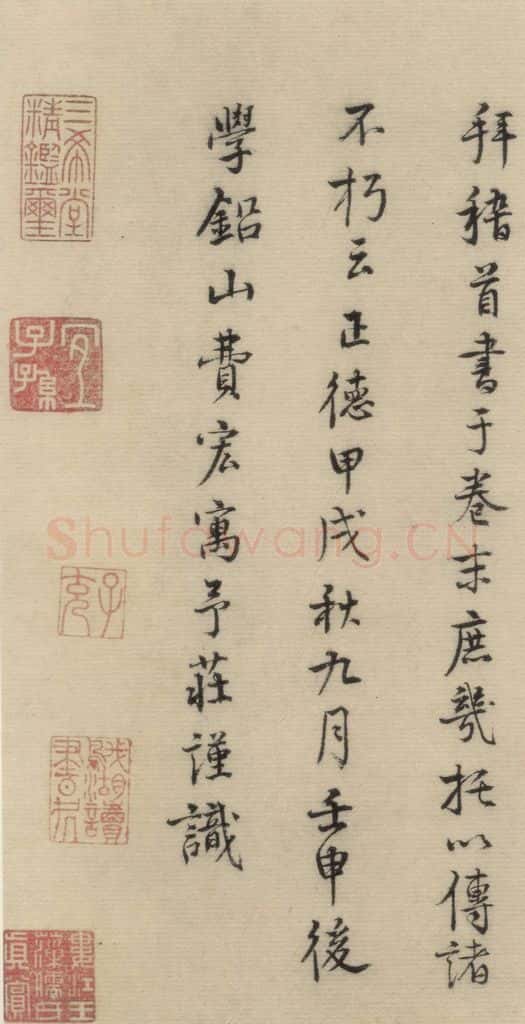 拜稽首書于卷末庶幾托以傳諸
不朽云正德甲戌秋九月壬申後
學鉛山費宏寓予莊謹識
三希堂
精鑑璽
宜
子孫
子
克
鵝湖讀
書
真賞
Shufawang.CN